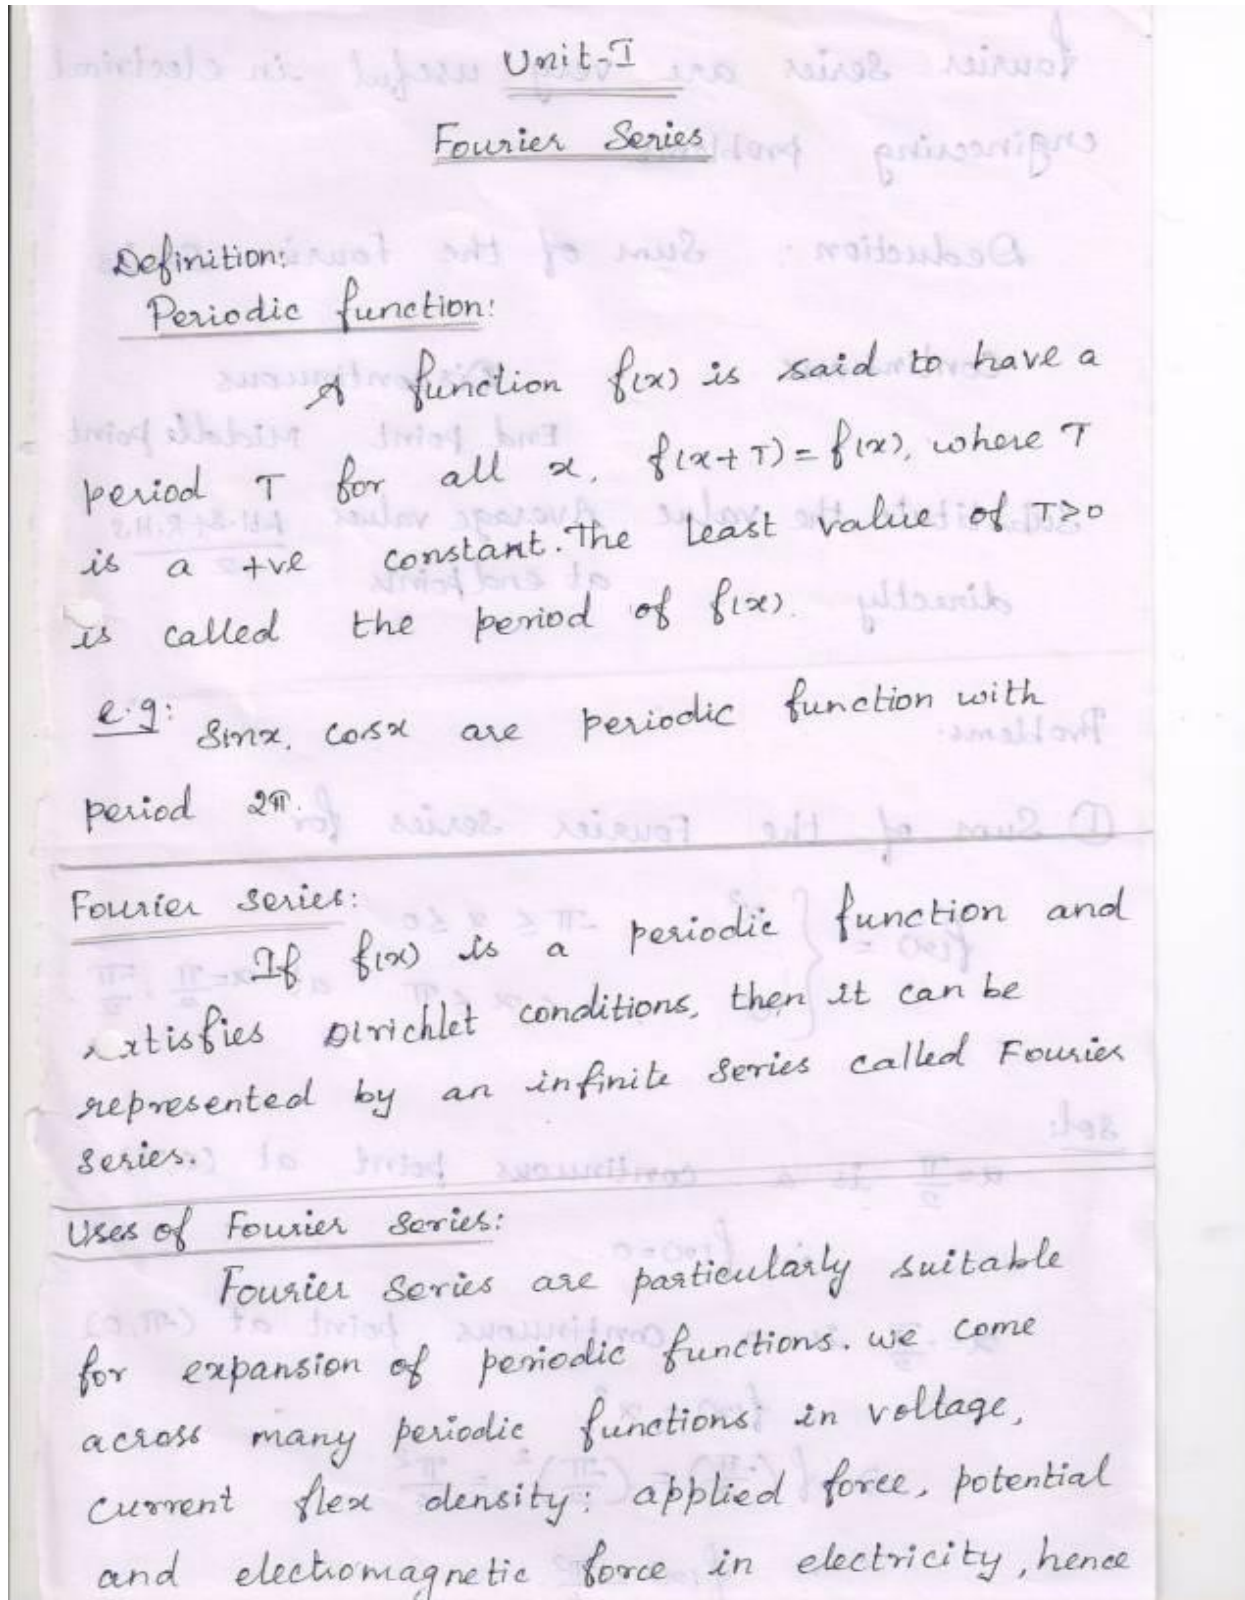 Unit-I
Fourier Series
Definition:
Periodic function:
A function f(x) is said to have a
period T for all x, f(x+T)=f(x), where T
is a +ve constant. The least value of T>0
is called the period of f(x).
e.g: Sinx, cosx are periodic function with
period 2π.
Fourier series:
If f(x) is a periodic function and
satisfies Dirichlet conditions, then it can be
represented by an infinite series called Fourier
series.
Uses of Fourier Series:
Fourier Series are particularly suitable
for expansion of periodic functions. we come
across many periodic functions in voltage,
current flex density, applied force, potential
and electromagnetic force in electricity, hence